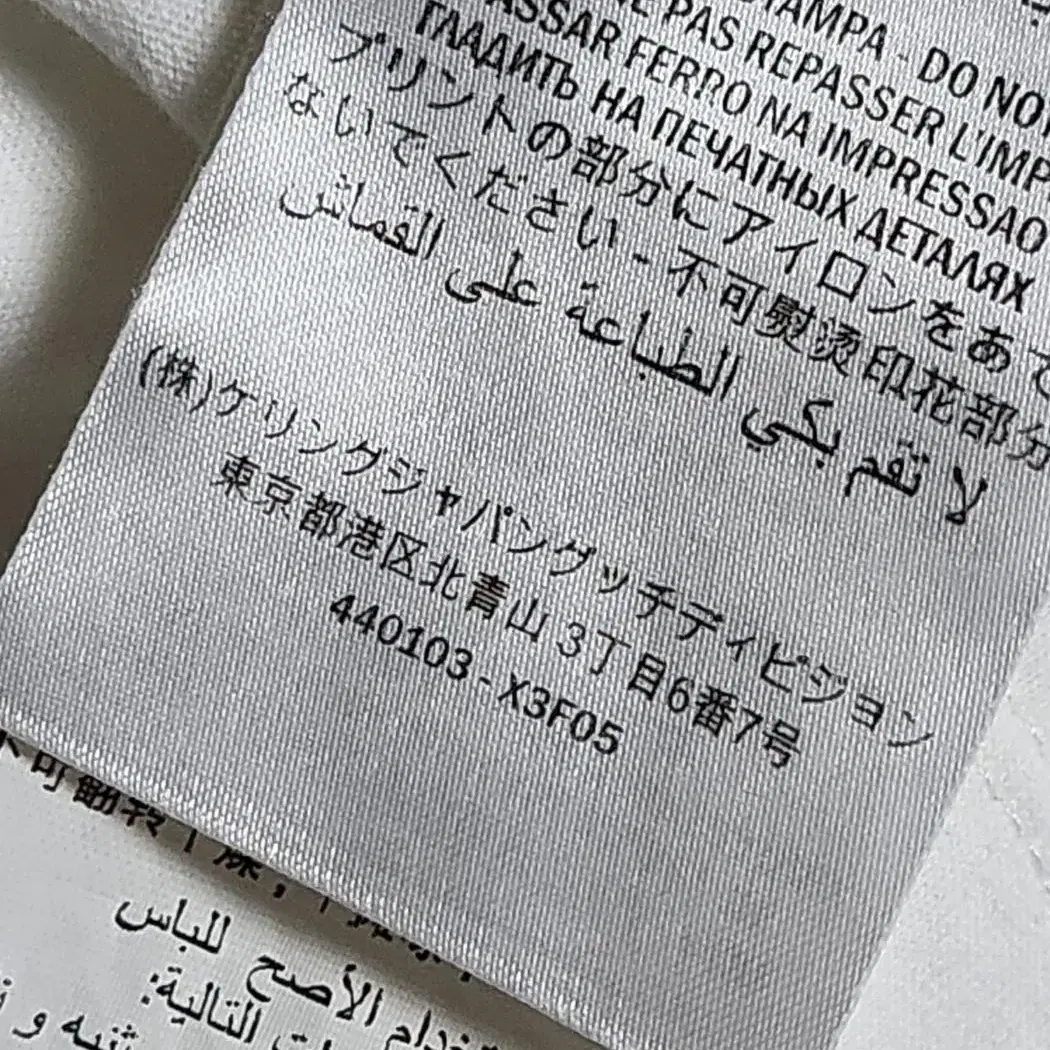 STAMPA - DO NO
PAS REPASSER L'IMP
ASSAR FERRO NA IMPRESSAO
ГЛАДИТЬ НА ПЕЧАТНЫХ ДЕТАЛЯХ
プリントの部分にアイロンをあて
ないでください - 不可熨烫印花部分
لا تقم بكي الطباعة على القماش
(株)ケリングジャパングッチディビジョン
東京都港区北青山 3丁目6番7号
440103 - X3F05
不可翻转干燥,
الأصح للباس
التالية: